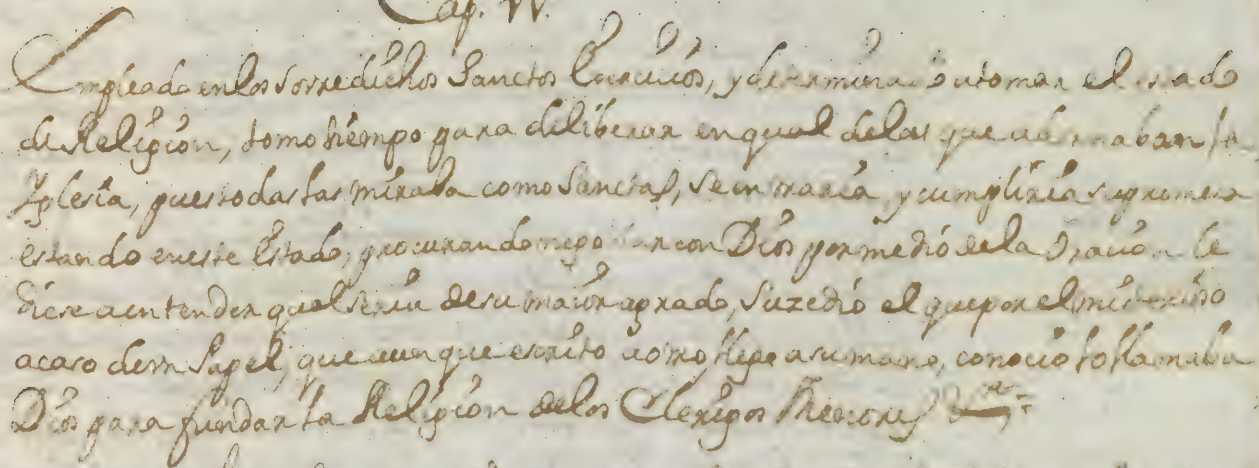 Cap. IV.
Empleado en los sorredichos Sanctos Exercicios, y determinado a tomar el estado
de Religion, tomo tiempo para deliberar en qual delas que adornaban la
Yglesia, pues todas las miraba como Sanctas, se entraria, y cumpliria su promesa
estando en este Estado, procurando negociar con Dios por medio de la Oracion le
diese a entender qual seria de su maior agrado, suzedio el que por el misterioso
acaso de un Papel, que aunque escrito a otro llego a su mano, conocio lo llamaba
Dios para fundar la Religion delos Clerigos Menores